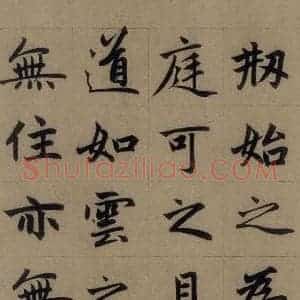 始之為
庭可之
道如雲之
無住亦無
Shufaziliao.c